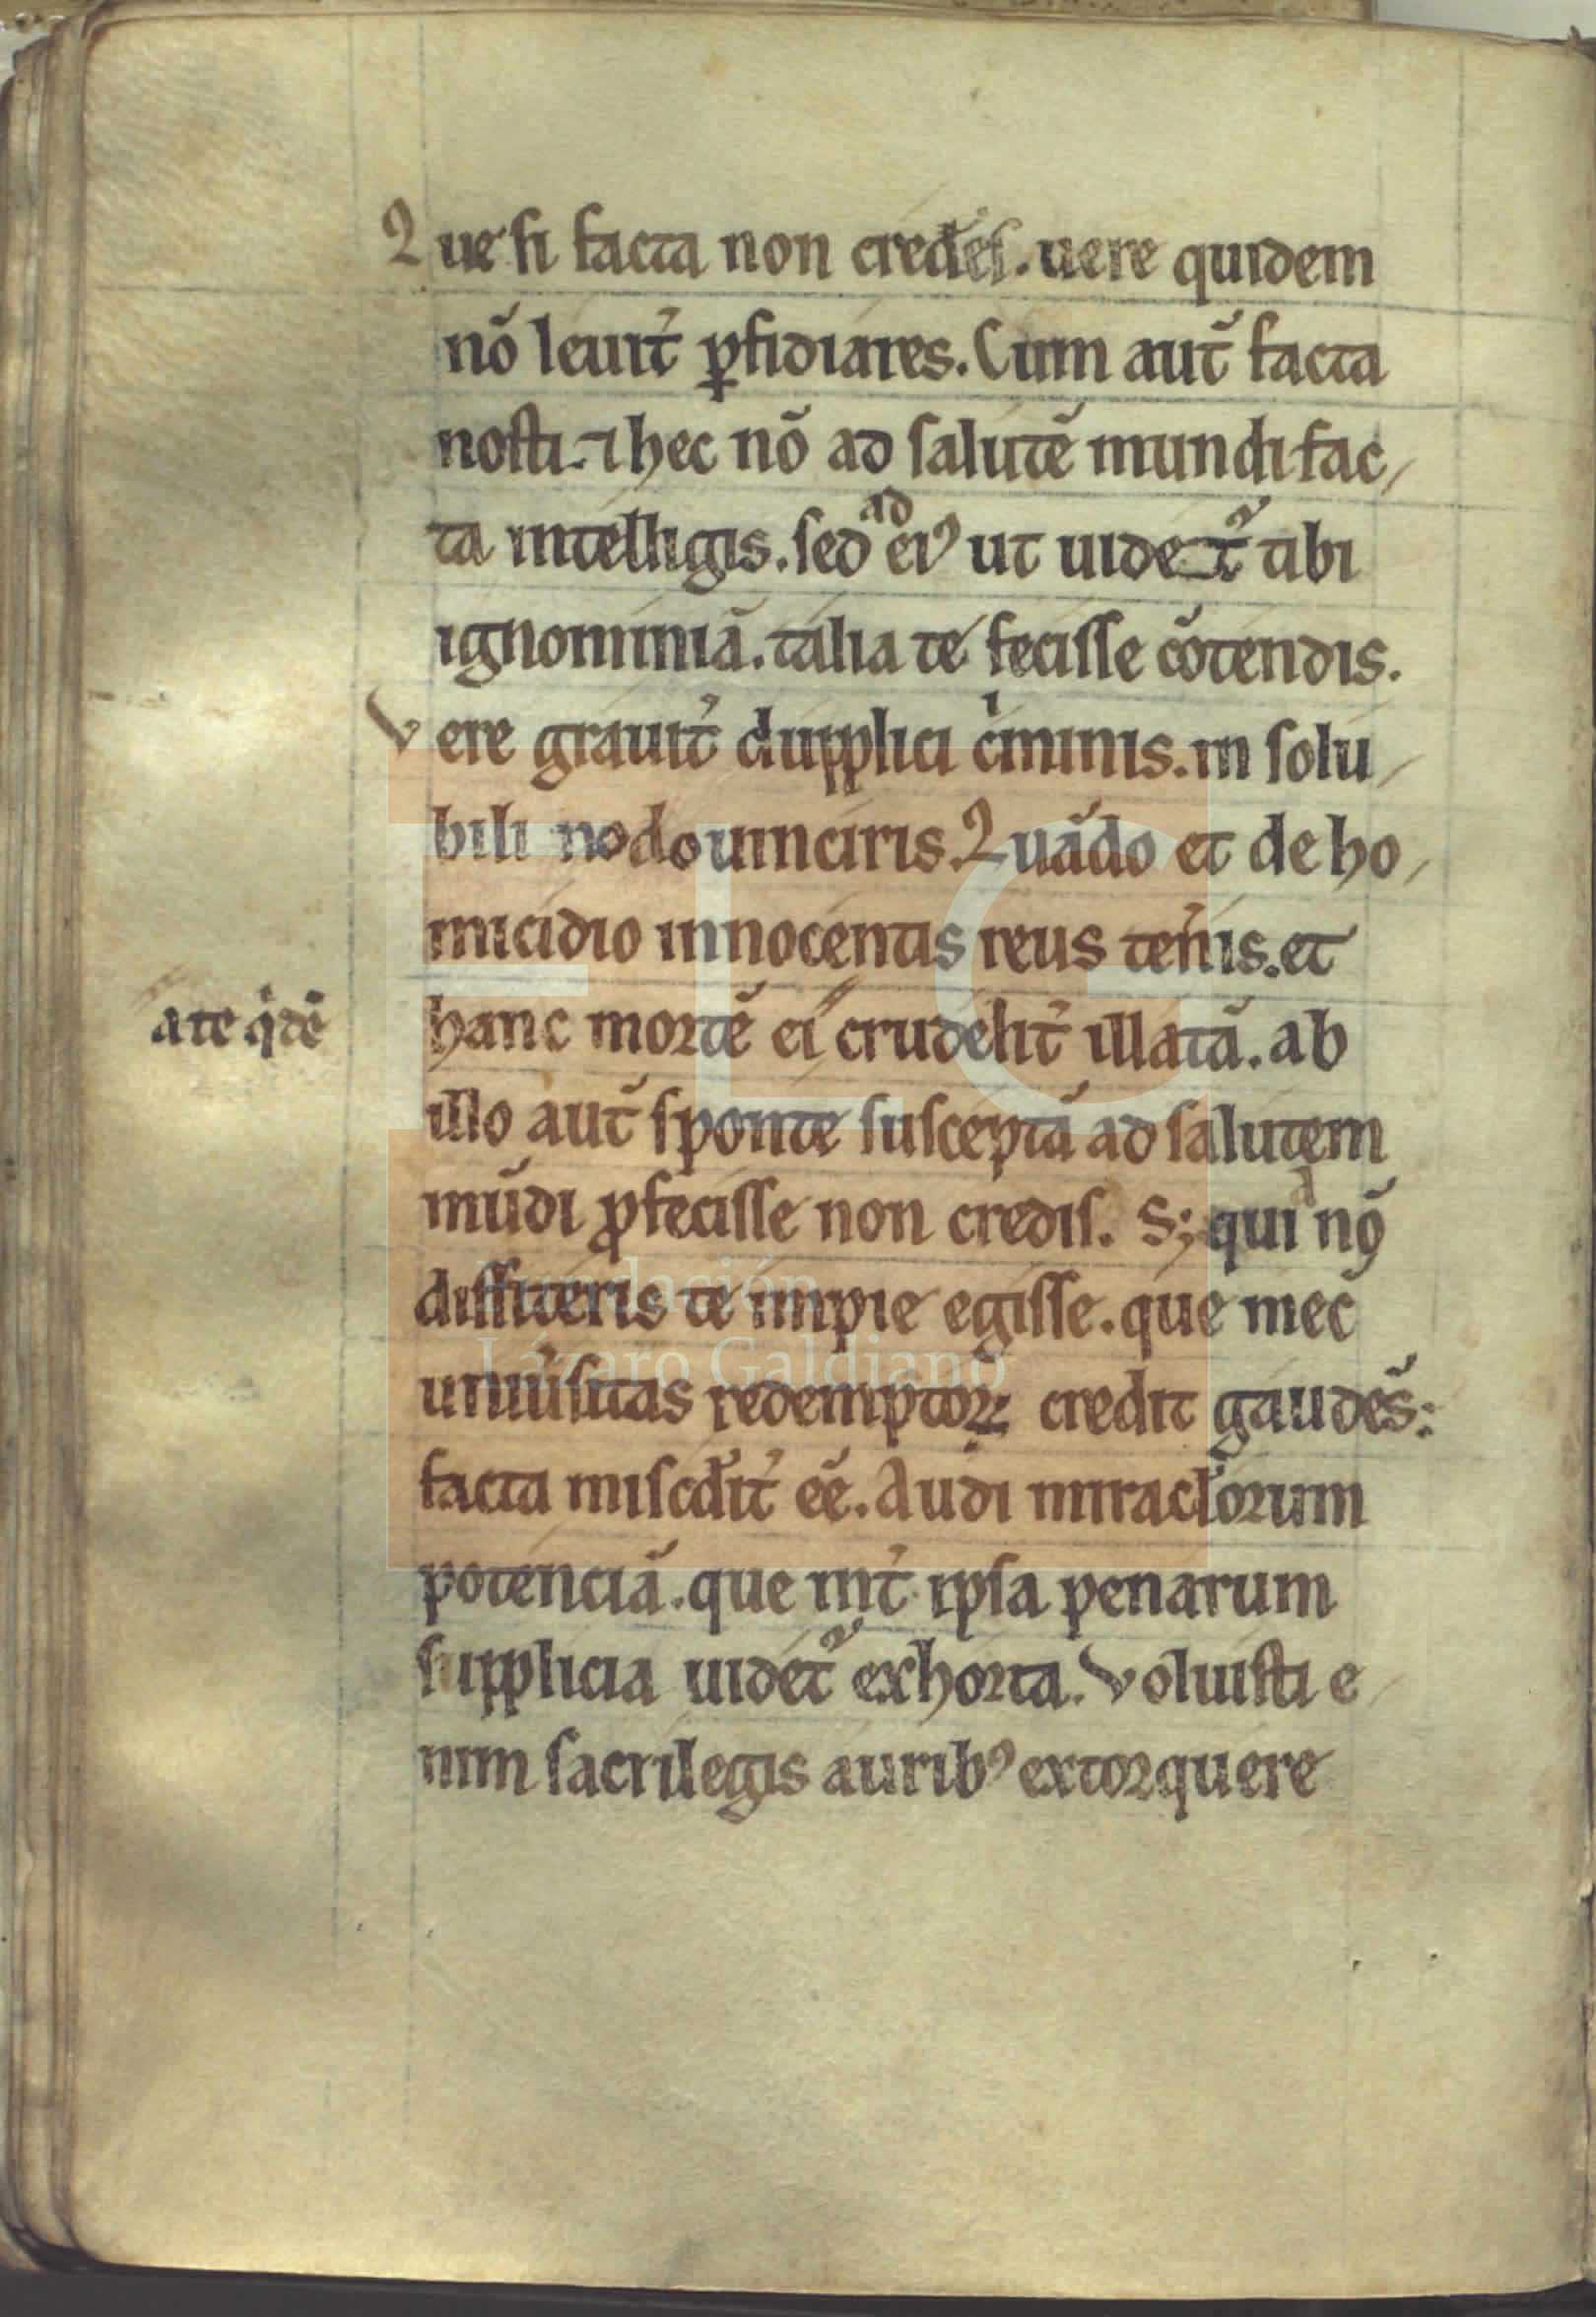 Que si facta non credẽs. uere quidem
nõ leuit̾ ꝑfidiares. Cum aut̃ facta
nosti. ⁊ hec nõ ad salutẽ mundi fac/
ta intelligis. sed ad ei᾽ ut uidet̃ tibi
ignominiã. talia te fecisse cõtendis.
Vere grauit̾ dupplici cͥminis. in solu/
bili nodo uinciris. Quãdo et de ho/
micidio innocentis reus ten̾is. et
a te qͥdẽ
hanc mortẽ ei crudelit̾ illatã. ab
illo aut̃ sponte susceptã ad salutem
mũdi ꝓfecisse non credis. S; quiᵃ nõ
diffiteris te impie egisse. que mec̃
uniu̾sitas redemptoꝝ credit gaudẽs:
facta misc̃dit̾ eẽ. Audi miracl̃orum
potenciã. que int̾ ipsa penarum
supplicia uidet̃ exhorta. Voluisti e/
nim sacrilegis aurib᾽ extorquere
FLG
Fundación
Lázaro Galdiano